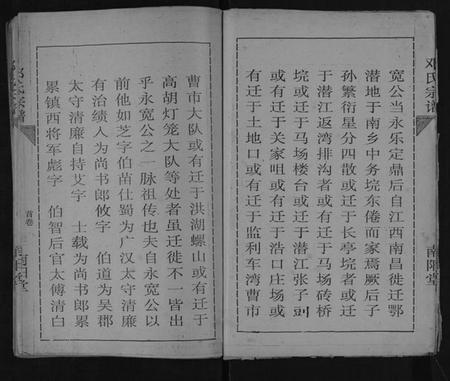 邓氏宗谱
南阳堂
宽公当永乐定鼎后自江西南昌徙迁鄂
潜地于南乡中务垸东倦而家焉厥后子
孙繁衍星分四散或迁于长亭垸者或迁
于潜江返湾排沟者或有迁于马场砖桥
垸或迁于马场楼台或迁于潜江张子
或有迁于关家咀或有迁于浩口庄场或
有迁于土地口或有迁于监利车湾曹市
曹市大队或有迁于洪湖螺山或有迁于
高胡灯笼大队等处者虽迁徙不一皆出
乎永宽公之一脉祖传也夫自永宽公以
前他如芝字伯苗仕蜀为广汉太守清廉
有治绩人为尚书郎攸字 伯道为吴郡
太守清廉自持艾字 士载为尚书郎累
累镇西将军彪字 伯智后官太傅清白
首卷